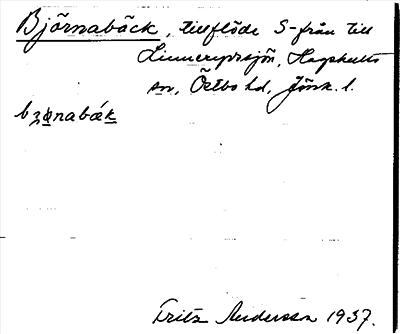 Björnabäck, tillflöde S-från till
Linnerydssjön, Hagshults
sn, Östbo hd, Jönk. l.
bȥo̲nabák̲
Fritz Andersson 1937.